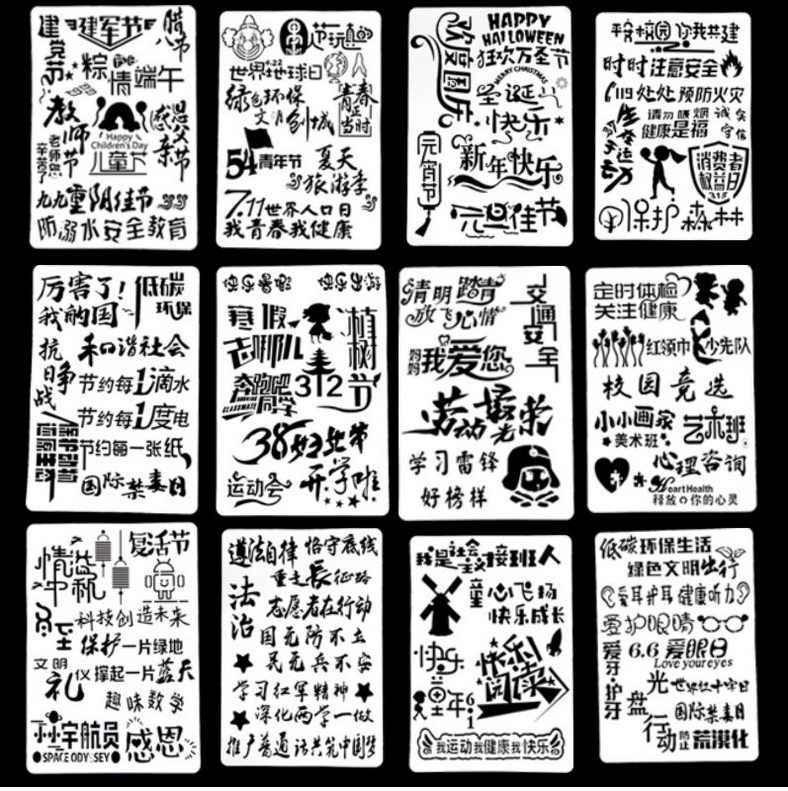 建党节
建军节
腊八节
粽情端午
教师节
老师您辛苦了
Happy
Children's Day
儿童节
感恩父亲节
九九重阳佳节
防溺水安全教育
世界地球日
绿色环保
文明创城
青春正当时
54青年节
夏天
旅游季
7.11世界人口日
我青春我健康
欢度国庆
HAPPY
HALLOWEEN
狂欢万圣节
MERRY CHRISTMAS
圣诞节
快乐
新年快乐
元宵节
元旦佳节
平安校园 你我共建
时时注意安全
119处处预防火灾
请勿吸烟
健康是福
诚实守信
消费者权益日
3.15
保护森林
厉害了!
我的国
低碳环保
抗日争战
和谐社会
节约每1滴水
节约每1度电
节约每一张纸
国际禁毒日
快乐暑假
快乐出游
寒假去哪儿
奔跑吧同学
CLASSMATE
植树节
312
38妇女节
运动会
开学啦
清明踏青
放飞心情
交通安全
妈妈我爱您
劳动最光荣
学习雷锋
好榜样
定时体检
关注健康
红领巾
少先队
校园竞选
小小画家
美术班
艺术班
心理咨询
HeartHealth
释放你的心灵
情溢中秋
复活节
科技创造未来
保护一片绿地
文明礼仪
撑起一片蓝天
趣味数学
宇航员
SPACE ODYSSEY
感恩
遵法自律 恪守底线
重走长征路
法治
志愿者在行动
国无防不立
民无兵不安
学习红军精神
深化两学一做
推广普通话共筑中国梦
我是社会主义接班人
童心飞扬
快乐成长
快乐童年
6.1
快乐阅读
我运动我健康我快乐
低碳环保生活
绿色文明出行
爱耳护耳健康听力
爱护眼睛
爱牙护牙
6.6 爱眼日
Love your eyes
光盘行动
世界红十字日
国际禁毒日
防止荒漠化